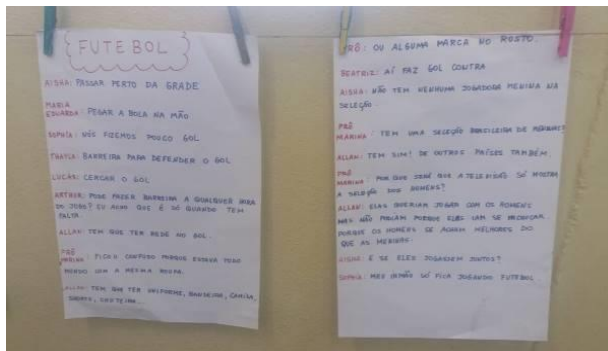 FUTEBOL
AISHA: PASSAR PERTO DA GRADE
MARIA
EDUARDA: PEGAR A BOLA NA MÃO
SOPHIA: NÓS FIZEMOS POUCO GOL
THAYLA: BARREIRA PARA DEFENDER O GOL
LUCAS: CERCAR O GOL
ARTHUR: PODE FAZER BARREIRA A QUALQUER HORA
DO JOGO? EU ACHO QUE É SÓ QUANDO TEM
FALTA.
ALLAN: TEM QUE TER REDE NO GOL.
PRÔ
MARINA: FICOU CONFUSO PORQUE ESTAVA TODO
MUNDO COM A MESMA ROUPA.
ALLAN: TEM QUE TER UNIFORME, BANDEIRA, CAMISA,
SHORTS, CHUTEIRA...
PRÔ: OU ALGUMA MARCA NO ROSTO.
BEATRIZ: AÍ FAZ GOL CONTRA
AISHA: NÃO TEM NENHUMA JOGADORA MENINA NA
SELEÇÃO.
PRÔ
MARINA: TEM UMA SELEÇÃO BRASILEIRA DE MENINAS?
ALLAN: TEM SIM! DE OUTROS PAÍSES TAMBÉM.
PRÔ
MARINA: POR QUE SERÁ QUE A TELEVISÃO SÓ MOSTRA
A SELEÇÃO DOS HOMENS?
ALLAN: ELAS QUERIAM JOGAR COM OS HOMENS
MAS NÃO PODIAM PORQUE ELES IAM SE
PORQUE OS HOMENS SE ACHAM MELHORES DO
QUE AS MENINAS.
AISHA: E SE ELES JOGASSEM JUNTOS?
SOPHIA: MEU IRMÃO SÓ FICA JOGANDO FUTEBOL